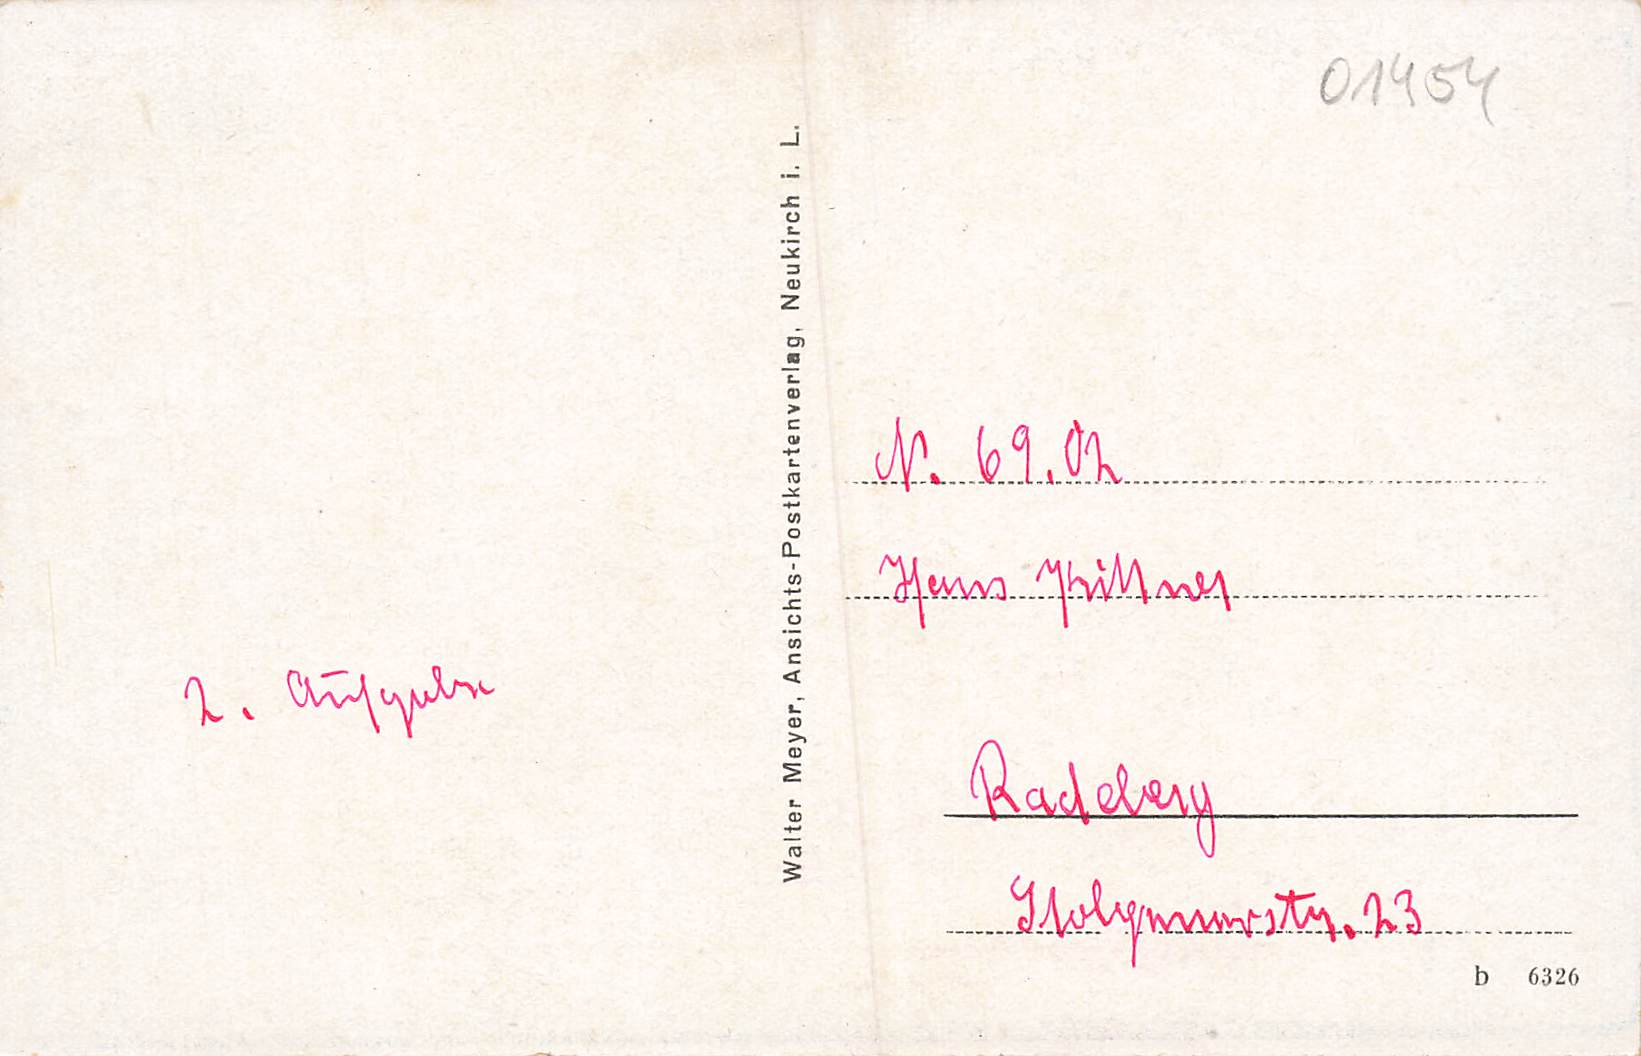 01454
2. Aufgabe
Walter Meyer, Ansichts-Postkartenverlag, Neukirch i. L.
N. 69.02
Hans Kittner
Radeberg
23
b 6326